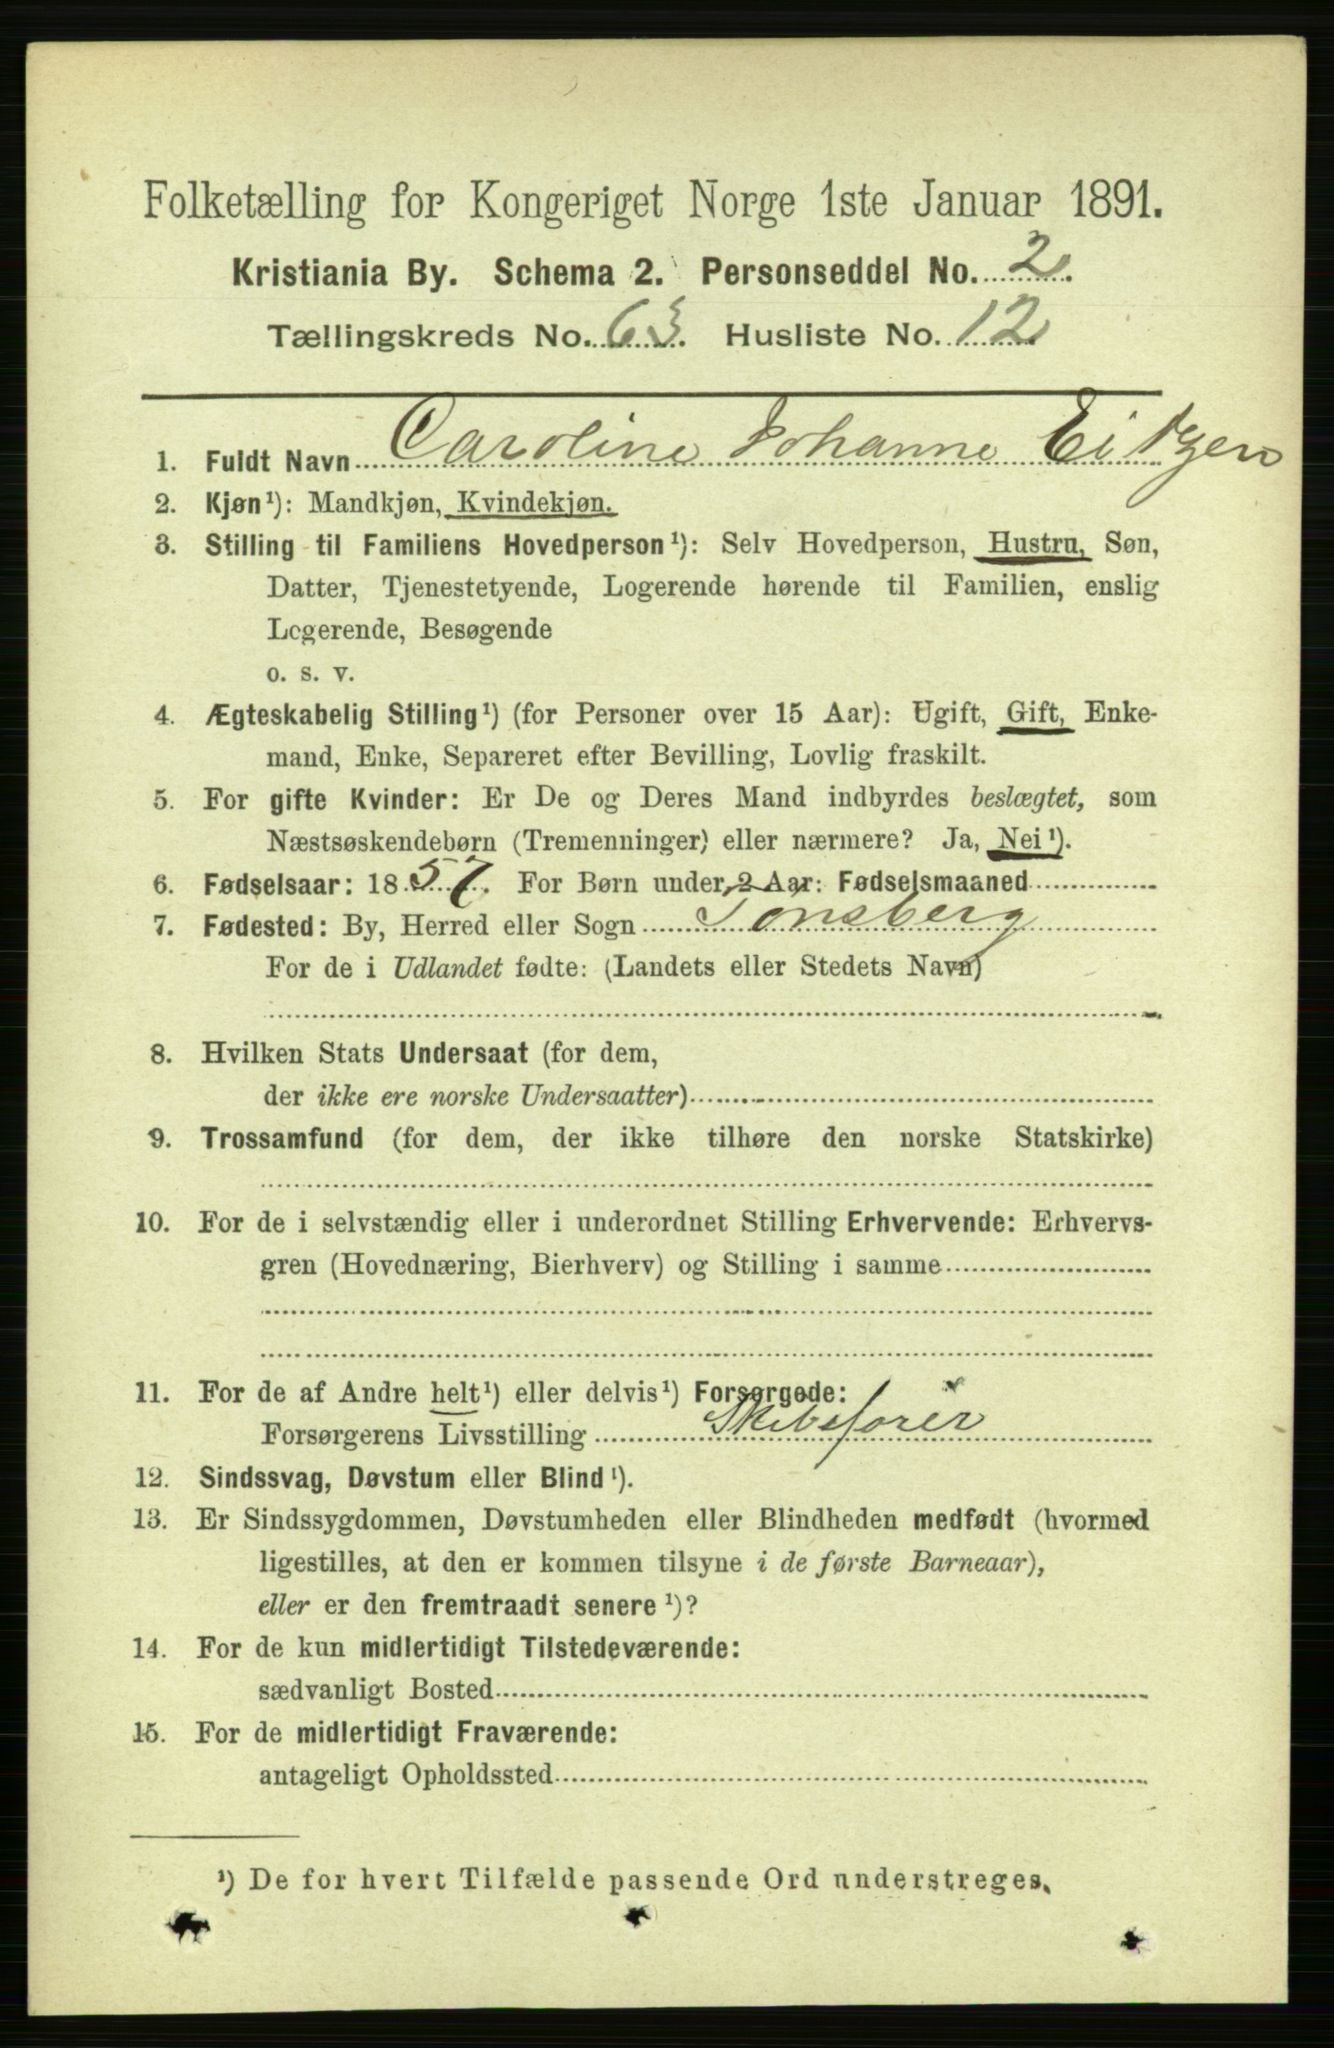 Folketælling for Kongeriget Norge 1ste Januar 1891.
Kristiania By. Schema 2. Personseddel No. 2.
Tællingskreds No. 63. Husliste No. 12
1. Fuldt Navn Caroline Johanne Eitzen
2. Kjøn¹): Mandkjøn, Kvindekjøn.
3. Stilling til Familiens Hovedperson¹): Selv Hovedperson, Hustru, Søn,
Datter, Tjenestetyende, Logerende hørende til Familien, enslig
Logerende, Besøgende
o. s. v.
4. Ægteskabelig Stilling¹) (for Personer over 15 Aar): Ugift, Gift, Enke-
mand, Enke, Separeret efter Bevilling, Lovlig fraskilt.
5. For gifte Kvinder: Er De og Deres Mand indbyrdes beslægtet, som
Næstsøskendebørn (Tremenninger) eller nærmere? Ja, Nei¹).
6. Fødselsaar: 1857. For Børn under 2 Aar: Fødselsmaaned
7. Fødested: By, Herred eller Sogn Tønsberg
For de i Udlandet fødte: (Landets eller Stedets Navn)
8. Hvilken Stats Undersaat (for dem,
der ikke ere norske Undersaatter)
9. Trossamfund (for dem, der ikke tilhøre den norske Statskirke)
10. For de i selvstændig eller i underordnet Stilling Erhvervende: Erhvervs-
gren (Hovednæring, Bierhverv) og Stilling i samme
11. For de af Andre helt¹) eller delvis¹) Forsørgede:
Forsørgerens Livsstilling Skibsfører
12. Sindssvag, Døvstum eller Blind¹).
13. Er Sindssygdommen, Døvstumheden eller Blindheden medfødt (hvormed
ligestilles, at den er kommen tilsyne i de første Barneaar),
eller er den fremtraadt senere¹)?
14. For de kun midlertidigt Tilstedeværende:
sædvanligt Bosted
15. For de midlertidigt Fraværende:
antageligt Opholdssted
¹) De for hvert Tilfælde passende Ord understreges.